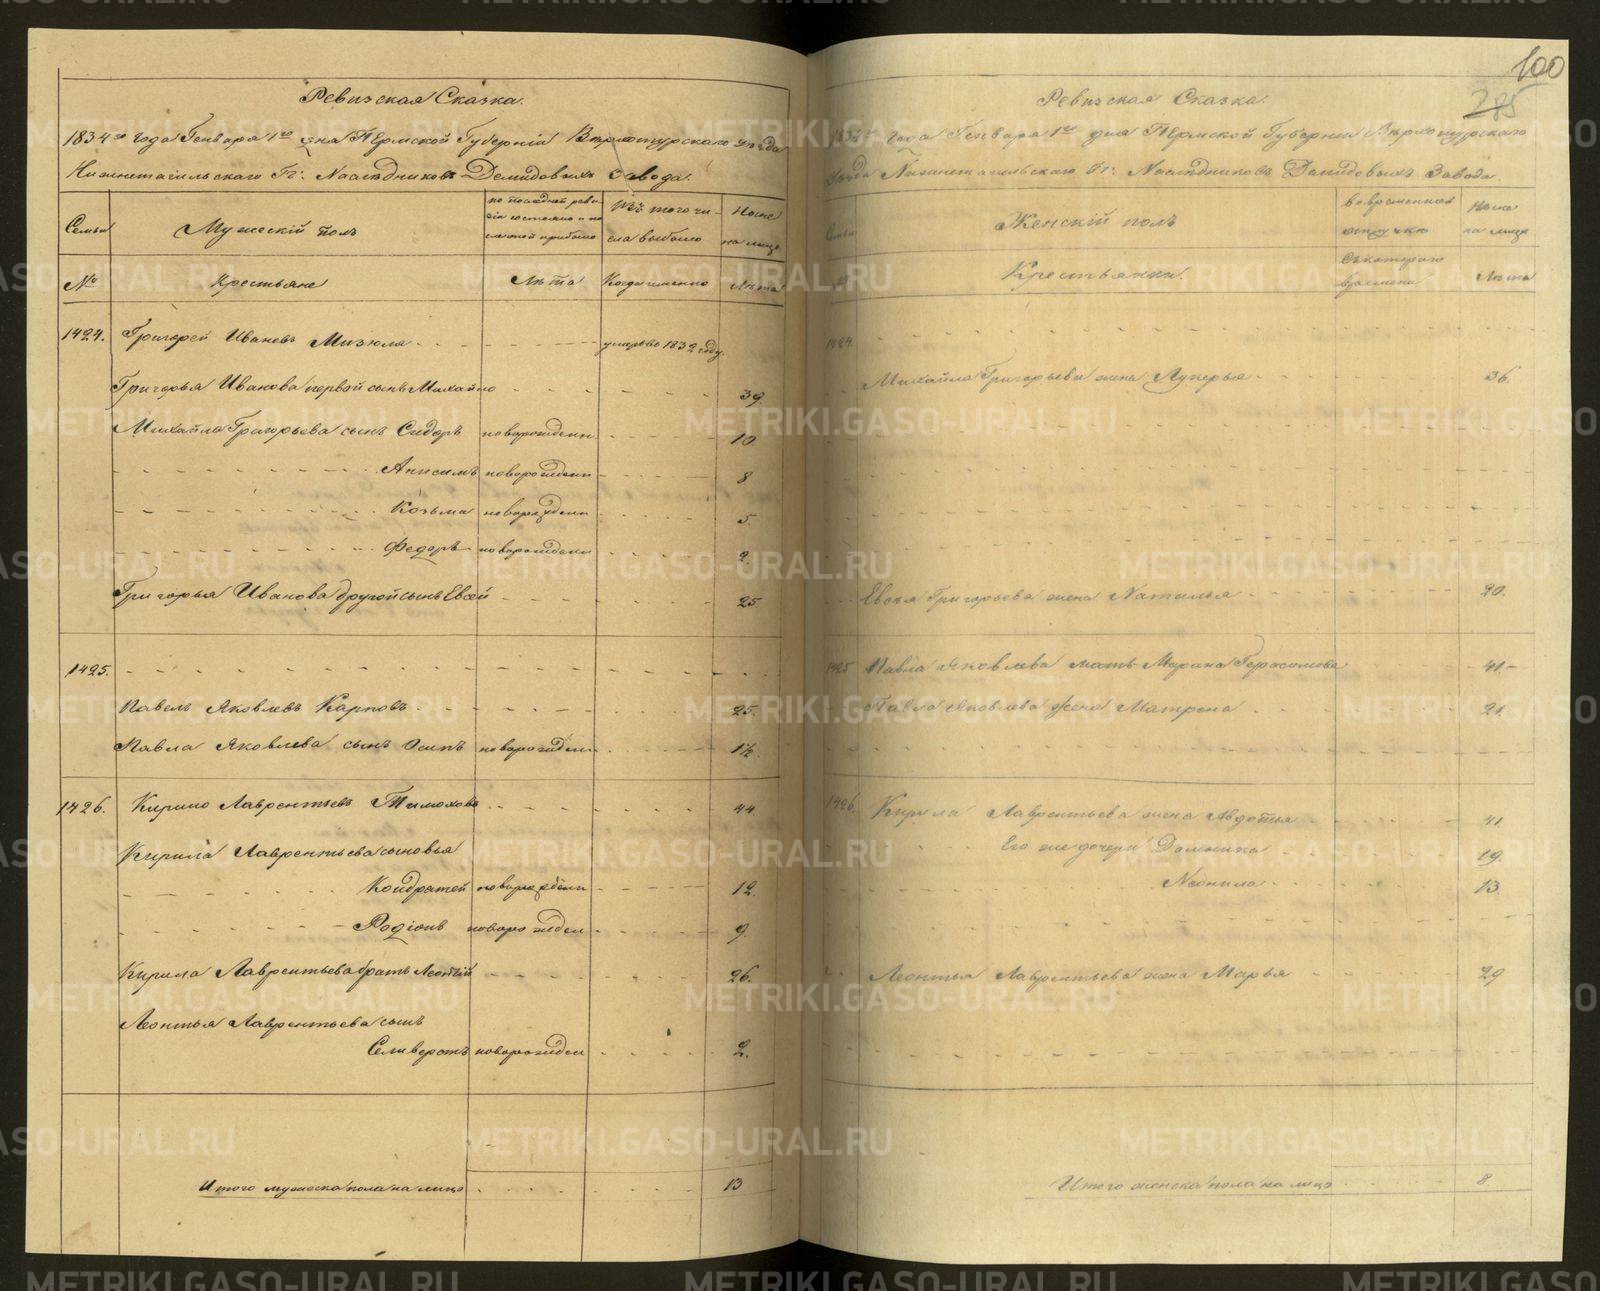 Ревизская Сказка.
1834го года Генваря 1го дня Пермской Губерніи Верхотурскаго уѣзда
Нижнетагильскаго Гг: Наслѣдниковъ Демидовыхъ Завода.
Семьи
Мужескій полъ
по последней реви-
зіи состояло и по-
сле оной прибыло
Изъ того чи-
сла выбыло
Ныне
на лицо
№
Крестьяне
Лѣта
Когда именно
Лѣта
1424. Григорей Ивановъ Мизюла умеръ во 1832 году.
Григорья Иванова первой сынъ Михайло 39.
Михайла Григорьева сынъ Сидоръ новорожден 10.
Анисимъ новорожден 8
Козьма новорожден 5.
Федоръ новорожден 2.
Григорья Иванова другой сынъ Евсей 25
1425.
Павелъ Яковлевъ Карповъ 25.
Павла Яковлева сынъ Осипъ новорожден 1½
1426. Кирило Лаврентьевъ Тимоховъ 44.
Кирила Лаврентьева сыновья
Кондратей новорожден 12.
Родіонъ новорожден 9.
Кирила Лаврентьева братъ Леонтій 26.
Леонтья Лаврентьева сынъ
Селиверстъ новорожден 2.
Итого мужеска пола на лицо 13
100
285
Ревизская Сказка.
1834го года Генваря 1го дня Пермской Губерніи Верхотурскаго
Уѣзда Нижнетагильскаго Гг: Наслѣдниковъ Демидовыхъ Завода.
Семьи
Женскій полъ
во временной
отлучкѣ
Ныне
на лицо
№
Крестьянки
Съ котораго
времени
Лѣта
1424.
Михайла Григорьева жена Лукерья 36.
Евсея Григорьева жена Наталья 20.
1425 Павла Яковлева мать Марина Герасимова 41
Павла Яковлева жена Матрена 21
1426. Кирила Лаврентьева жена Авдотья 41
Его же дочери Домника 19.
Неонила 13.
Леонтья Лаврентьева жена Марья 29
Итого женска пола на лицо 8
METRIKI.GASO-URAL.RU